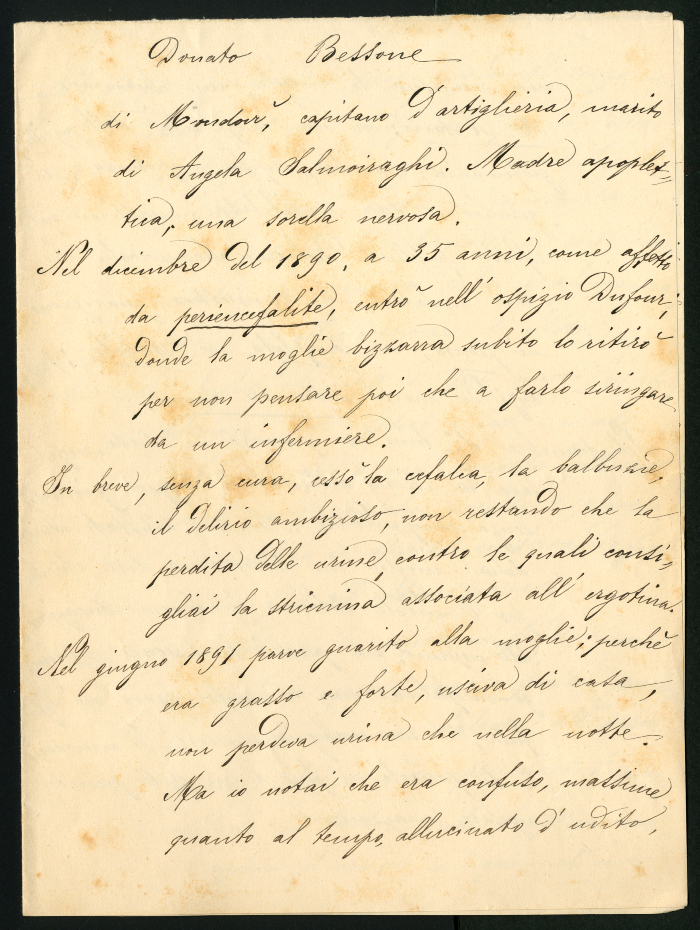 Donato Bessone
di Mondovì, capitano d'artiglieria, marito
di Angela Salmoiraghi. Madre apoplet=
tica, una sorella nervosa.
Nel dicembre del 1890, a 35 anni, come affetto
da periencefalite, entrò nell'ospizio Dufour;
donde la moglie bizzarra subito lo ritirò
per non pensare poi che a farlo siringare
da un infermiere.
In breve, senza cura, cessò la cefalea, la balbuzie,
il delirio ambizioso, non restando che la
perdita delle urine, contro le quali consi=
gliai la stricnina associata all'ergotina.
Nel giugno 1891 parve guarito alla moglie; perchè
era grasso e forte, usciva di casa,
non perdeva urina che nella notte.
Ma io notai che era confuso, massime
quanto al tempo, allucinato d'udito,